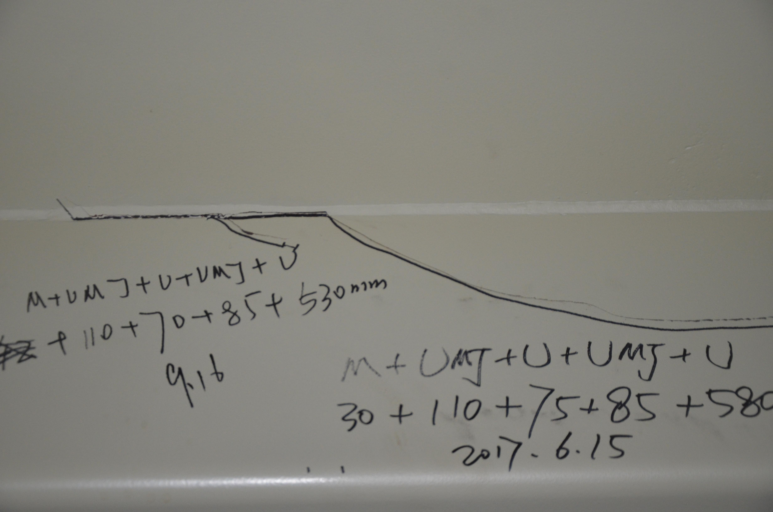 M+UMJ+U+UMJ+U
+110+70+85+530mm
9.16
M+UMJ+U+UMJ+U
30+110+75+85+580
2017.6.15